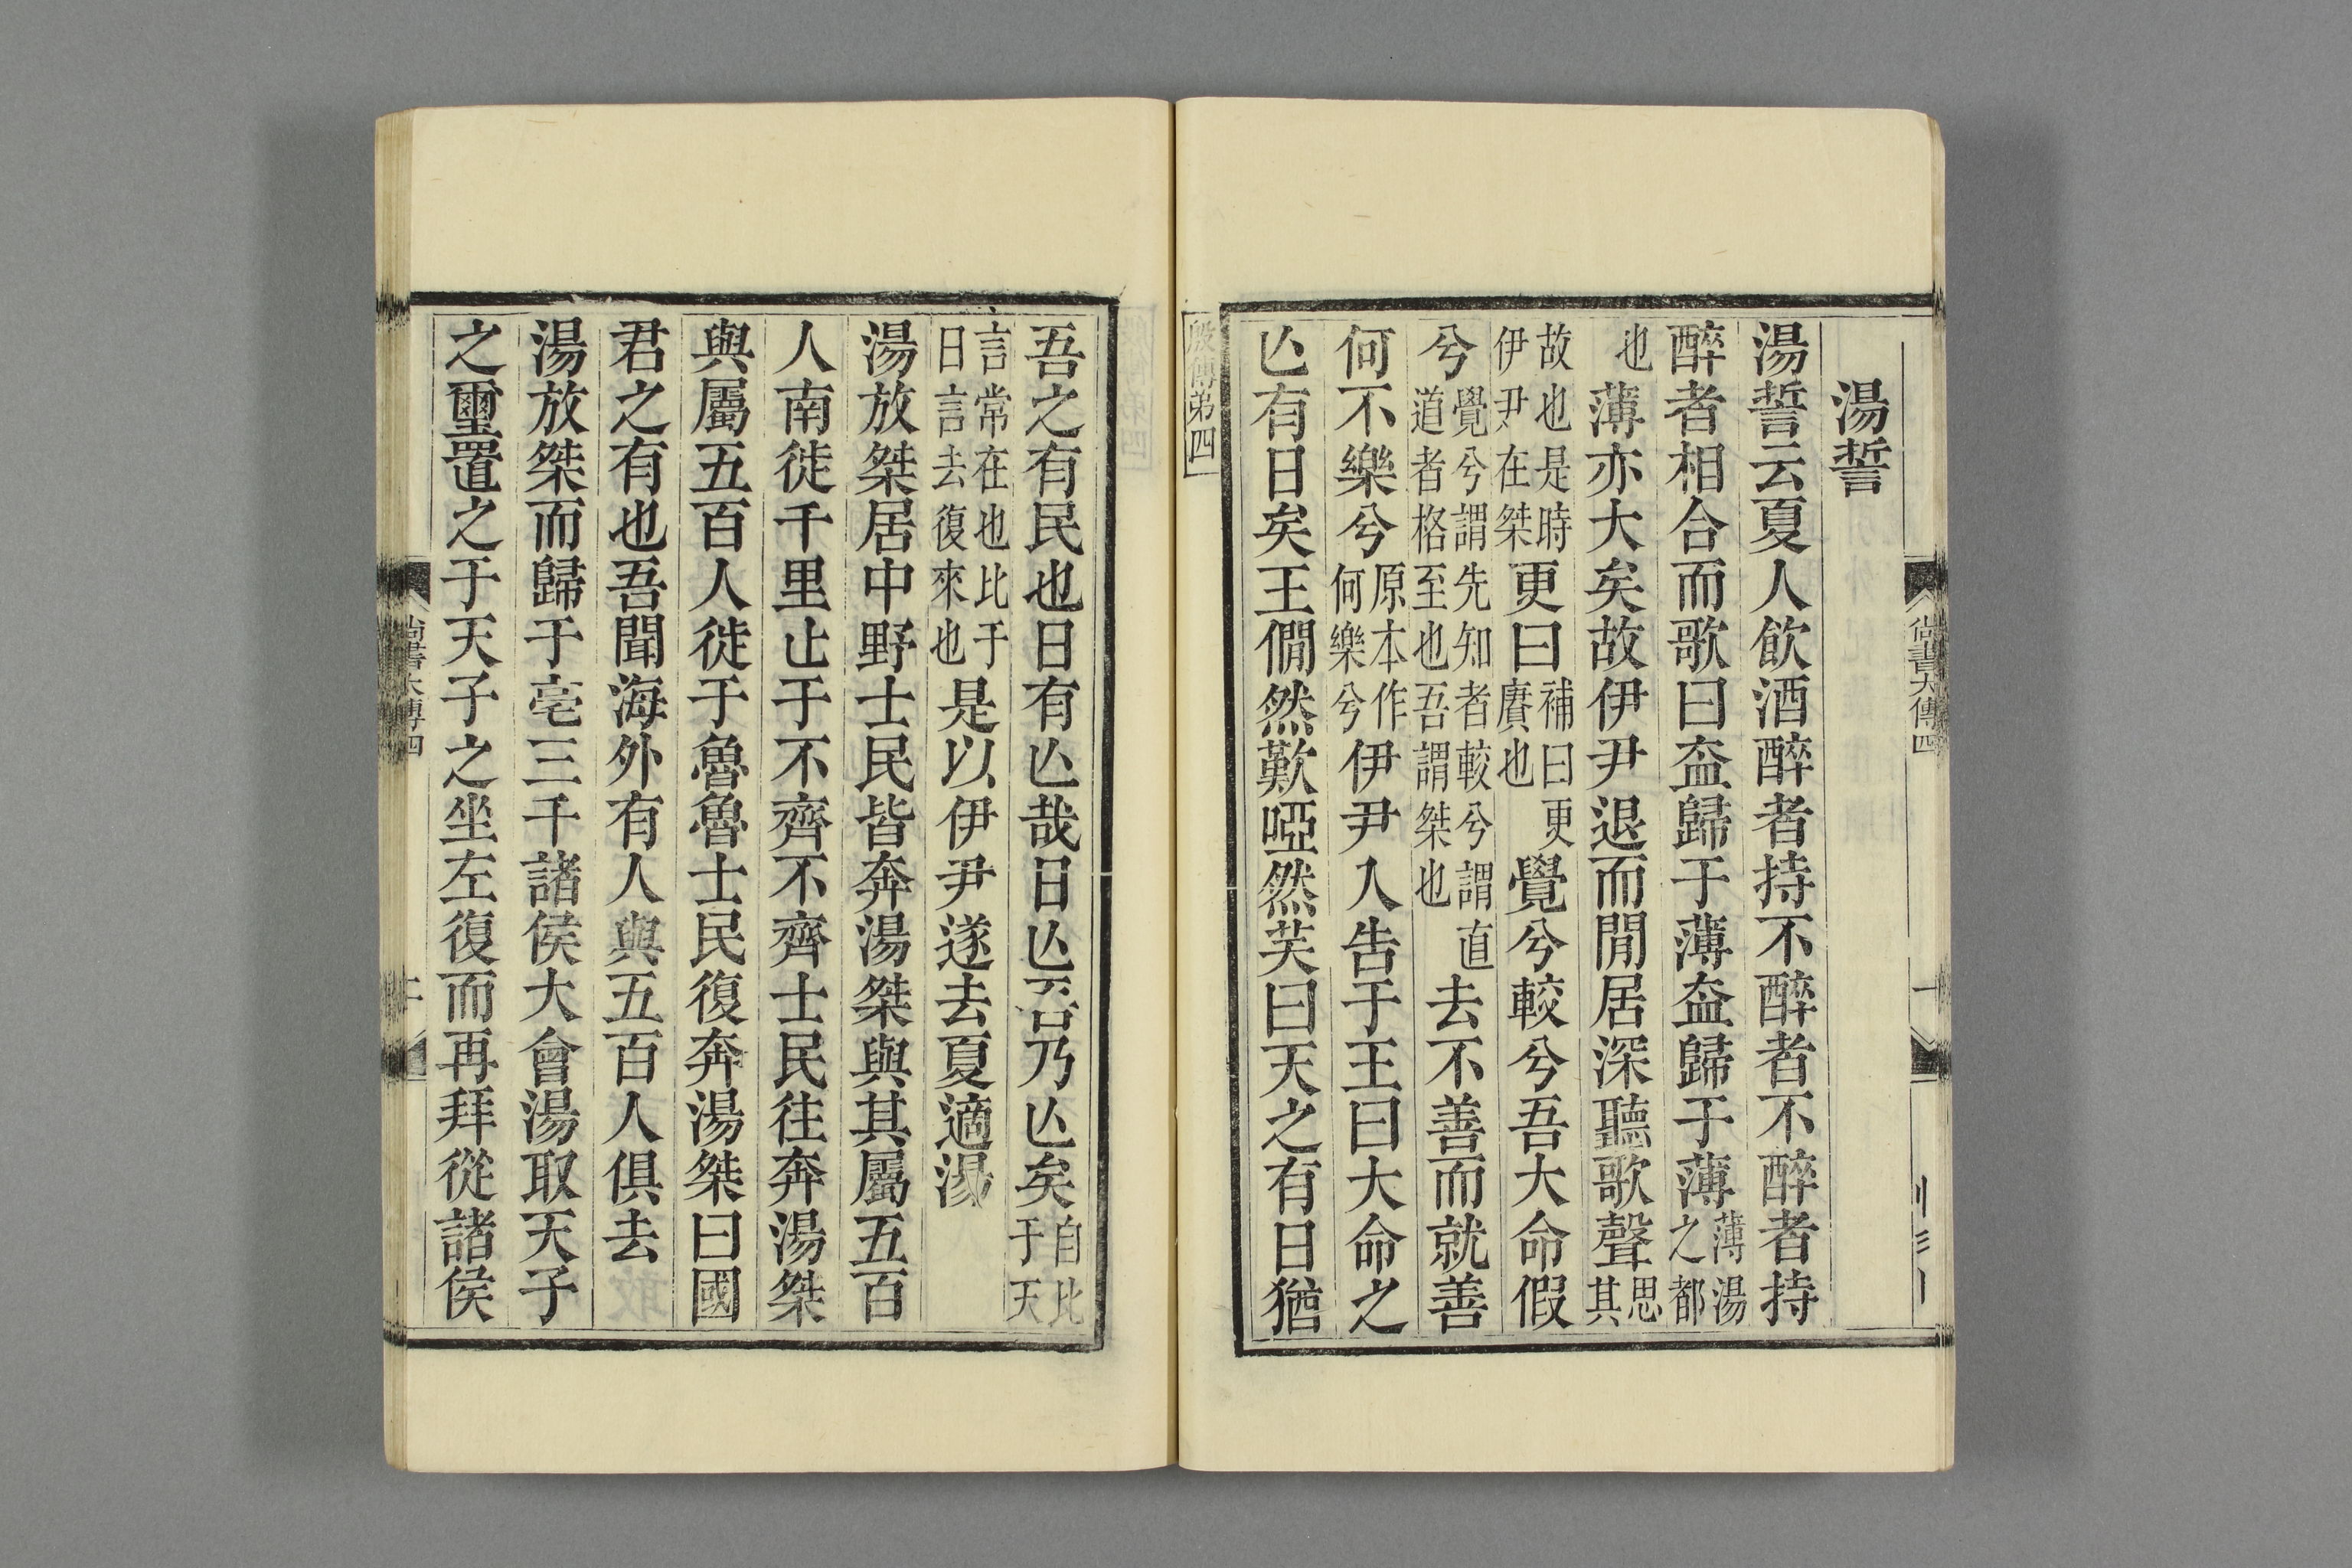 尚書大傳四
湯誓
湯誓云夏人飲酒醉者持不醉者不醉者持
醉者相合而歌曰盇歸于薄盇歸于薄薄湯之都
也薄亦大矣故伊尹退而閒居深聽歌聲思其
故也是時伊尹在桀更曰補曰更賡也覺兮較兮吾大命假
兮覺兮謂先知者較兮謂直道者格至也吾謂桀也去不善而就善
何不樂兮原本作何樂兮伊尹入告于王曰大命之
亾有日矣王僩然歎啞然芙曰天之有日猶
殷傳弟四
吾之有民也日有亾哉日亾吾乃亾矣自比于天
言常在也比于日言去復來也是以伊尹遂去夏適湯
湯放桀居中野士民皆奔湯桀與其屬五百
人南徙千里止于不齊不齊士民往奔湯桀
與屬五百人徙于魯魯士民復奔湯桀曰國
君之有也吾聞海外有人與五百人俱去
湯放桀而歸于亳三千諸侯大會湯取天子
之璽置之于天子之坐左復而再拜從諸侯
尚書大傳四